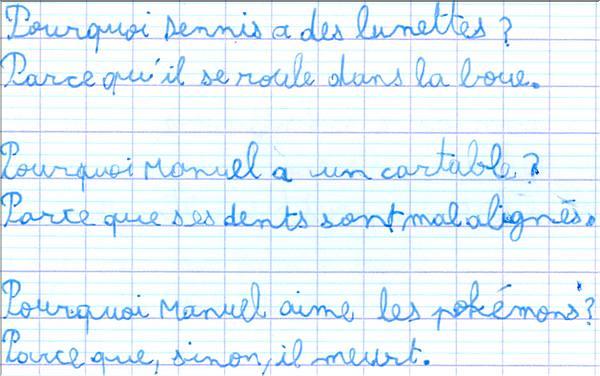 Pourquoi Dennis a des lunettes ?
Parce qu'il se roule dans la boue.
Pourquoi Manuel à un cartable ?
Parce que ses dents sont mal alignés.
Pourquoi Manuel aime les pokémons ?
Parce que, sinon, il meurt.